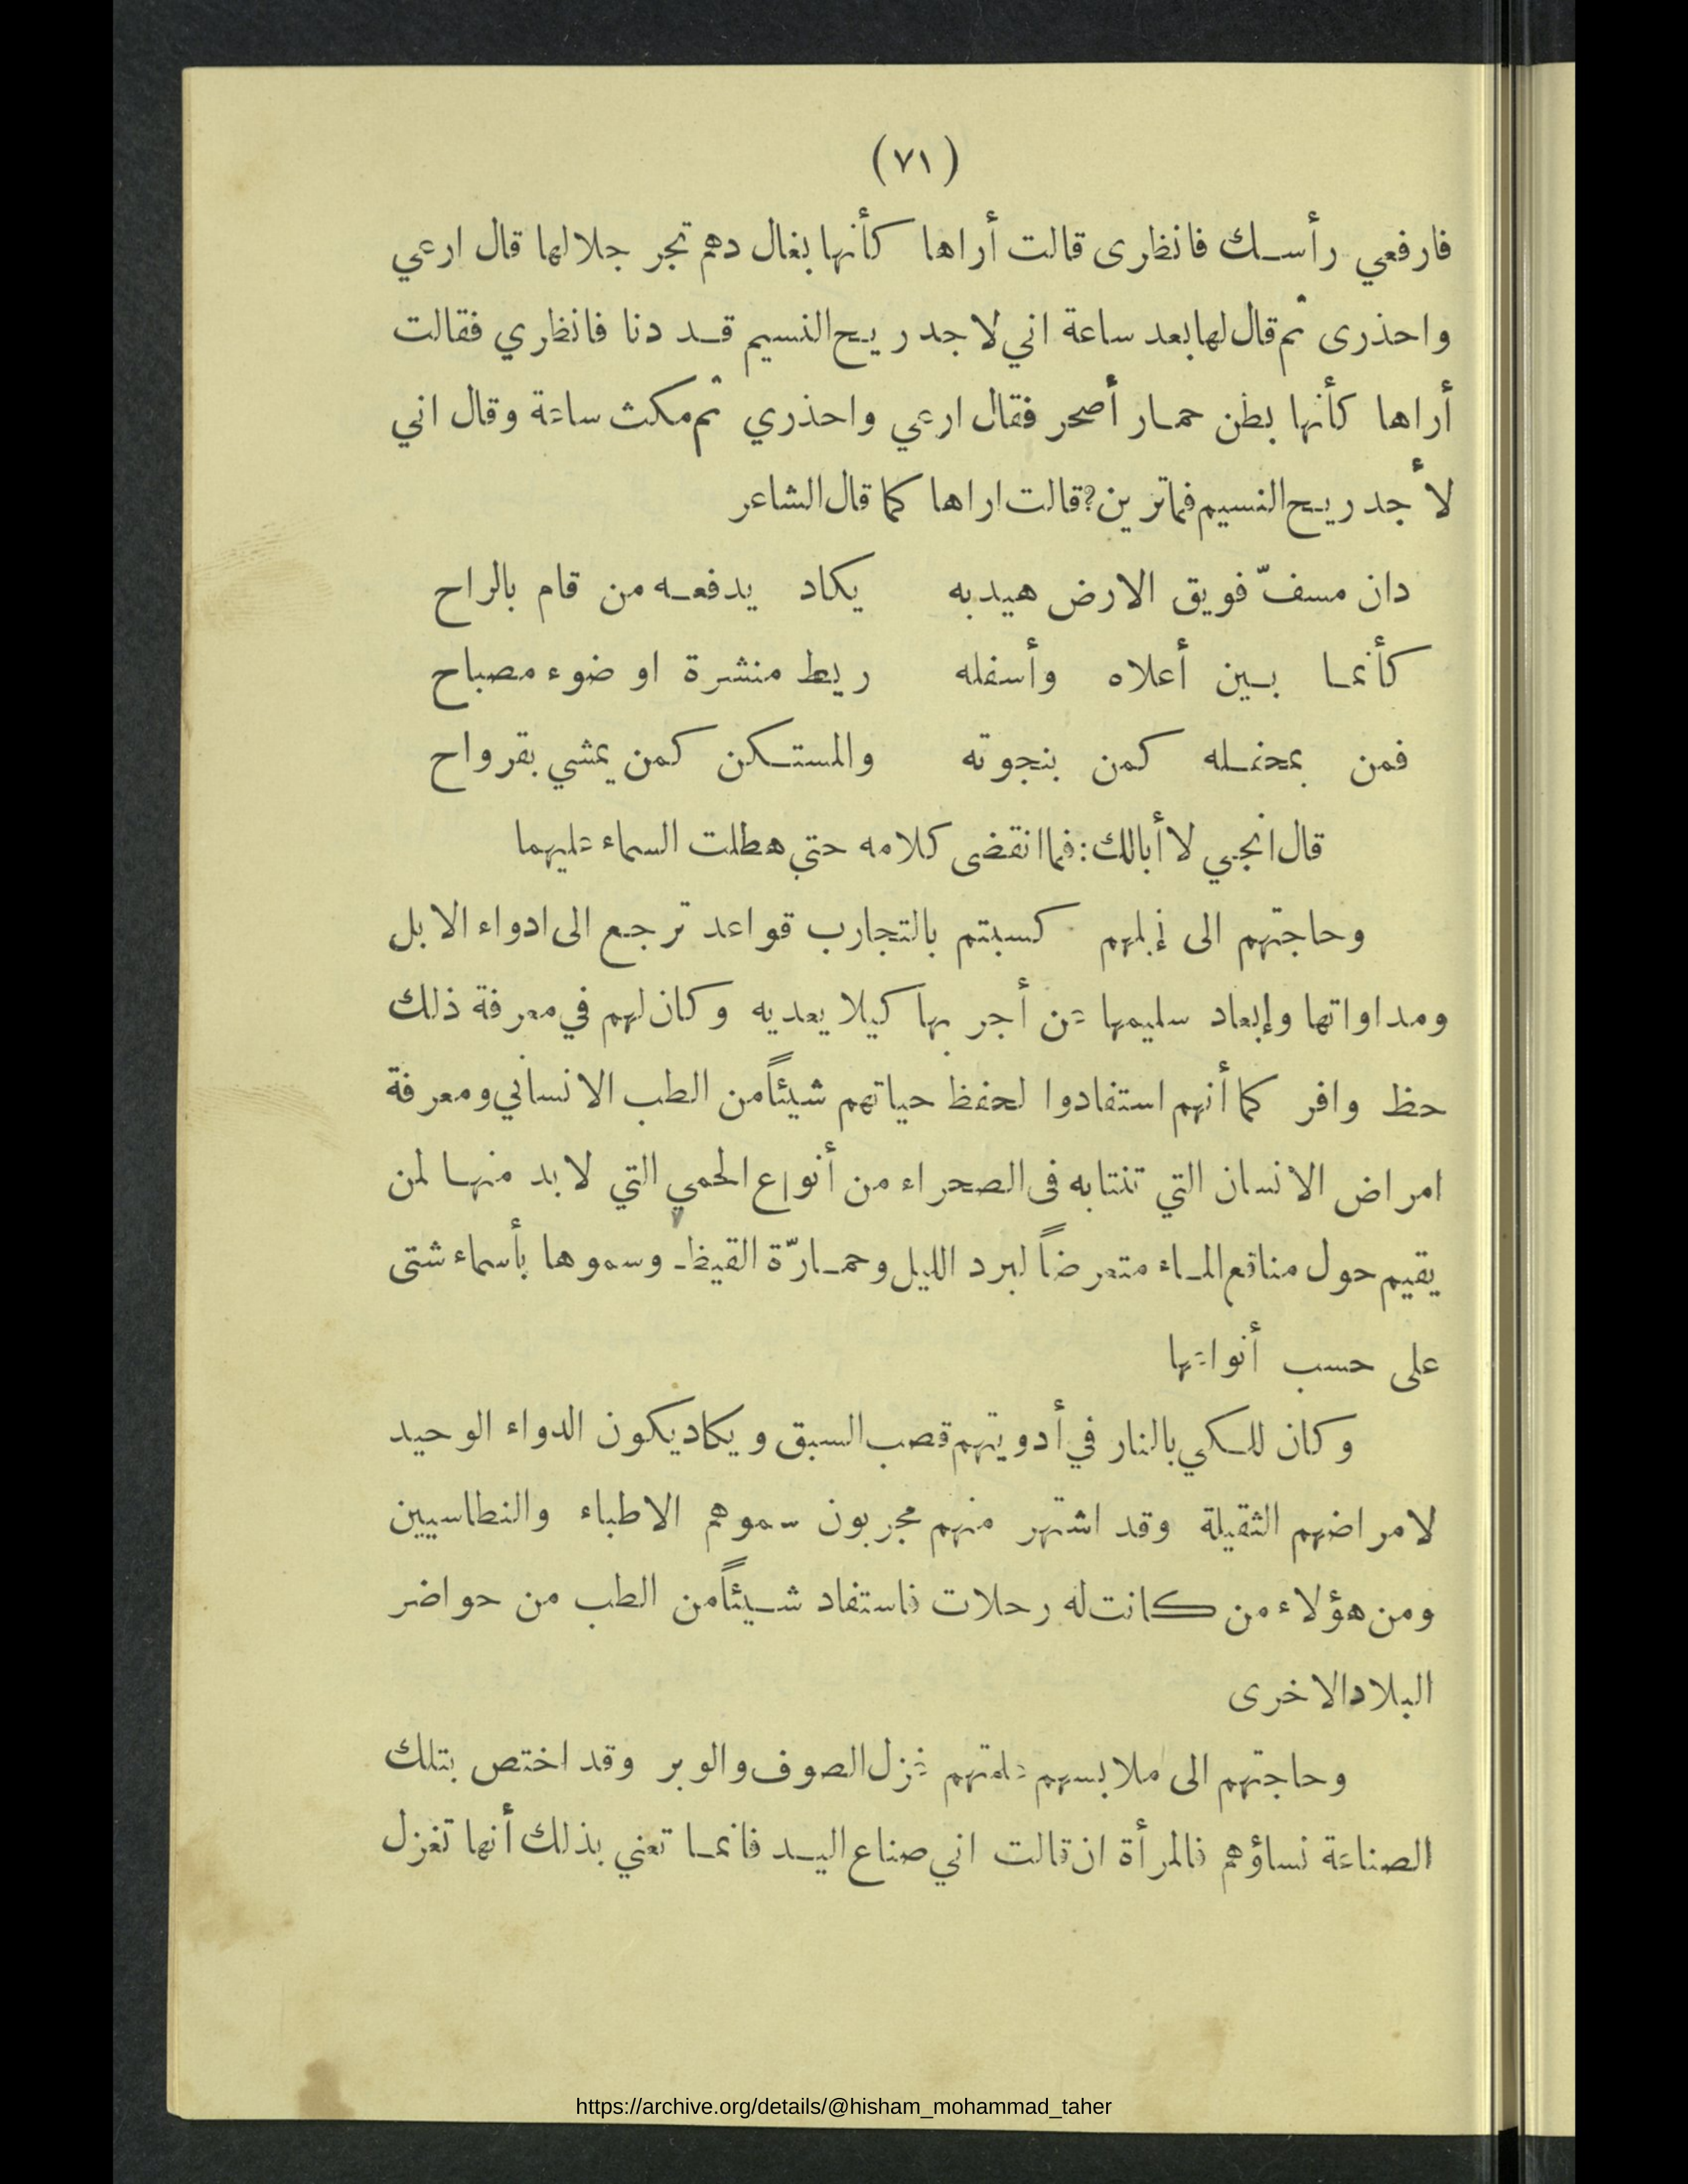 (٧١)
فارفعي رأسك فانظرى قالت أراها كأنها بغال دهم تجر جلالها قال ارعي
واحذرى ثم قال لها بعد ساعة اني لاجد ريح النسيم قد دنا فانظري فقالت
أراها كأنها بطن حمار أصحر فقال ارعي واحذري ثم مكث ساعة وقال اني
لأجد ريح النسيم فما ترين؟ قالت اراها كما قال الشاعر
دان مسفّ فويق الارض هيدبه يكاد يدفعه من قام بالراح
كأنما بين أعلاه وأسفله ريط منشرة او ضوء مصباح
فمن بمحفله كمن بنجوته والمستكن كمن يمشي بقرواح
قال انجي لا أبالك: فما انقضى كلامه حتى هطلت السماء عليهما
وحاجتهم الى إبلهم كسبتم بالتجارب قواعد ترجع الى ادواء الابل
ومداواتها وإبعاد سليمها عن أجربها كيلا يعديه وكان لهم في معرفة ذلك
حظ وافر كما أنهم استفادوا لحفظ حياتهم شيئاً من الطب الانساني ومعرفة
امراض الانسان التي تنتابه فى الصحراء من أنواع الحمي التي لا بد منها لمن
يقيم حول مناقع الماء متعرضاً لبرد الليل وحمارّة القيظ وسموها بأسماء شتى
على حسب أنواعها
وكان للكي بالنار في أدويتهم قصب السبق ويكاد يكون الدواء الوحيد
لامراضهم الثقيلة وقد اشتهر منهم مجربون سموهم الاطباء والنطاسيين
ومن هؤلاء من كانت له رحلات فاستفاد شيئاً من الطب من حواضر
البلاد الاخرى
وحاجتهم الى ملابسهم علمتهم غزل الصوف والوبر وقد اختص بتلك
الصناعة نساؤهم فالمرأة ان قالت اني صناع اليد فانما تعني بذلك أنها تغزل
https://archive.org/details/@hisham_mohammad_taher